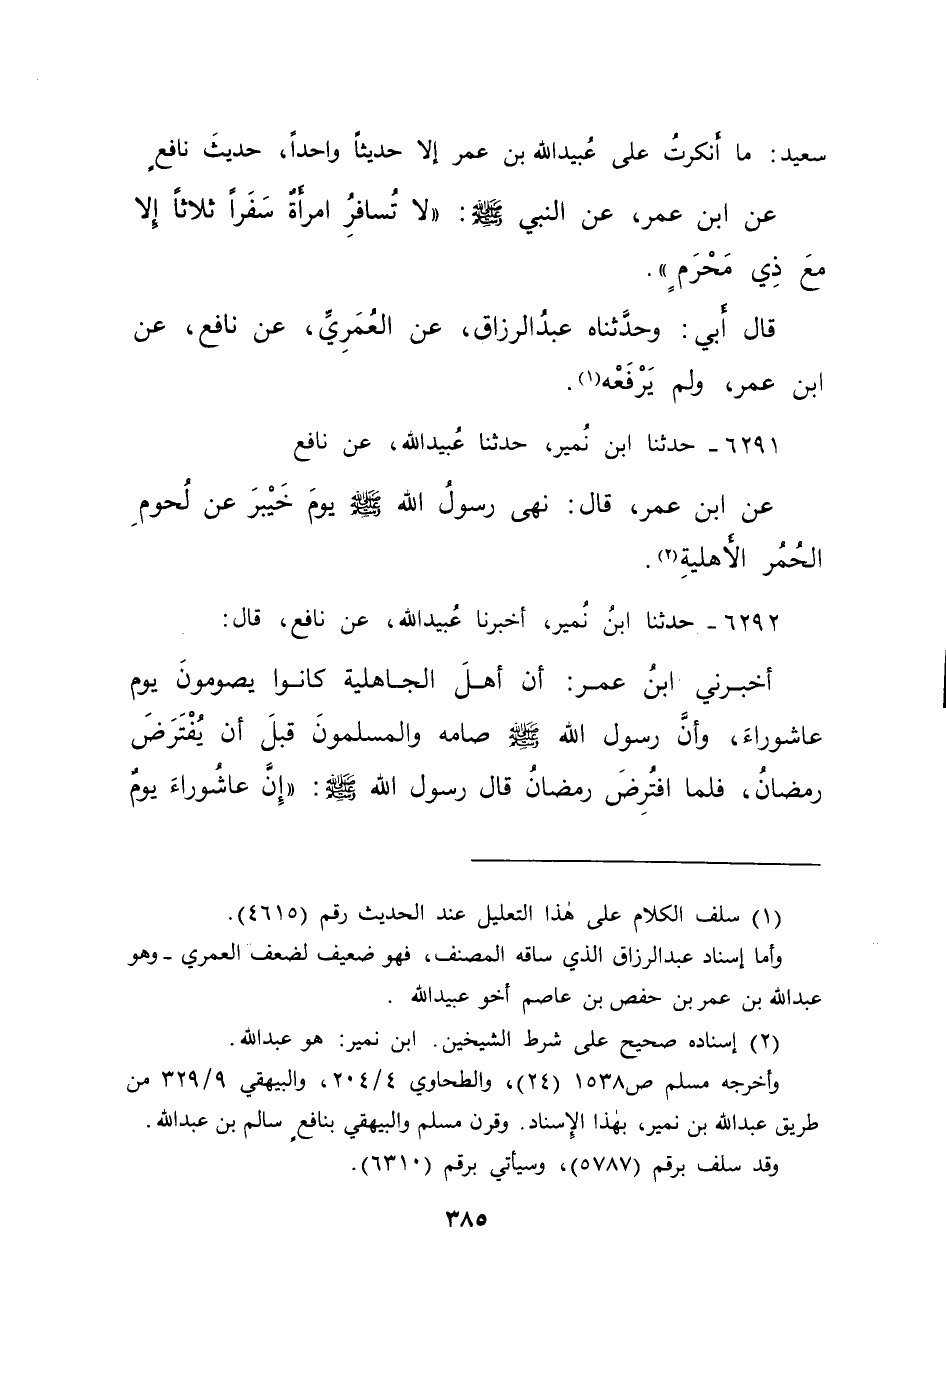 سعيد: ما أَنكرتُ على عُبيدالله بن عمر إلا حديثاً واحداً، حديثَ نافعٍ
عن ابن عمر، عن النبي ﷺ: «لا تُسافِرُ امرأَةٌ سَفَراً ثلاثاً إِلا
معَ ذِي مَحْرَمٍ».
قال أَبي: وحدَّثناه عبدُالرزاق، عن العُمَرِيِّ، عن نافع، عن
ابن عمر، ولم يَرْفَعْه(١).
٦٢٩١ ـ حدثنا ابن نُمير، حدثنا عُبيدالله، عن نافع
عن ابن عمر، قال: نهى رسولُ الله ﷺ يومَ خَيْبَرَ عن لُحومِ
الحُمُر الأَهليةِ(٢).
٦٢٩٢ ـ حدثنا ابنُ نُمير، أخبرنا عُبيدالله، عن نافع، قال:
أخبـرني ابنُ عمـر: أن أهـلَ الجـاهلية كانـوا يصومونَ يوم
عاشوراءَ، وأنَّ رسول الله ﷺ صامه والمسلمونَ قبلَ أن يُفْتَرَضَ
رمضانُ، فلما افتُرِضَ رمضانُ قال رسول الله ﷺ: «إِنَّ عاشُوراءَ يومٌ
(١) سلف الكلام على هٰذا التعليل عند الحديث رقم (٤٦١٥).
وأما إسناد عبدالرزاق الذي ساقه المصنف، فهو ضعيف لضعف العمري ـ وهو
عبدالله بن عمر بن حفص بن عاصم أخو عبيدالله .
(٢) إسناده صحيح على شرط الشيخين. ابن نمير: هو عبدالله.
وأخرجه مسلم ص١٥٣٨ (٢٤)، والطحاوي ٢٠٤/٤، والبيهقي ٣٢٩/٩ من
طريق عبدالله بن نمير، بهٰذا الإسناد. وقرن مسلم والبيهقي بنافعٍ سالم بن عبدالله.
وقد سلف برقم (٥٧٨٧)، وسيأتي برقم (٦٣١٠).
٣٨٥